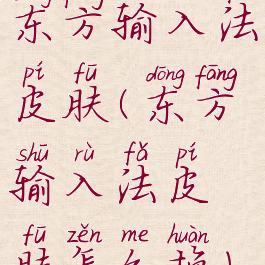 东方输入法
pí fū dōng fāng
皮肤(东方
shū rù fǎ pí
输入法皮
fū zěn me huàn
肤怎么换)